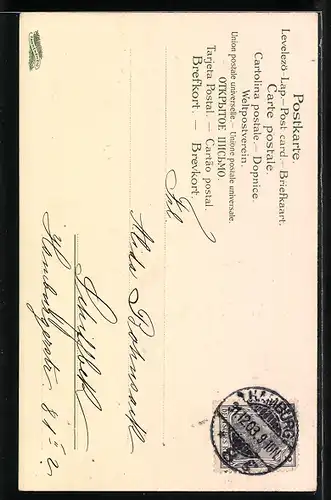 Postkarte.
Levelező-Lap.– Post card.– Briefkaart.
Carte postale.
Cartolina postale.– Dopnice.
Weltpostverein.
Union postale universelle.– Unione postale universale.
ОТКРЫТОЕ ПИСЬМО.
Tarjeta Postal. — Cartão postal.
Brefkort. — Brevkort.
Frl.
Alida Bahnsack
Schiffbeck
Hamburgerstr. 81 II
HAMBURG